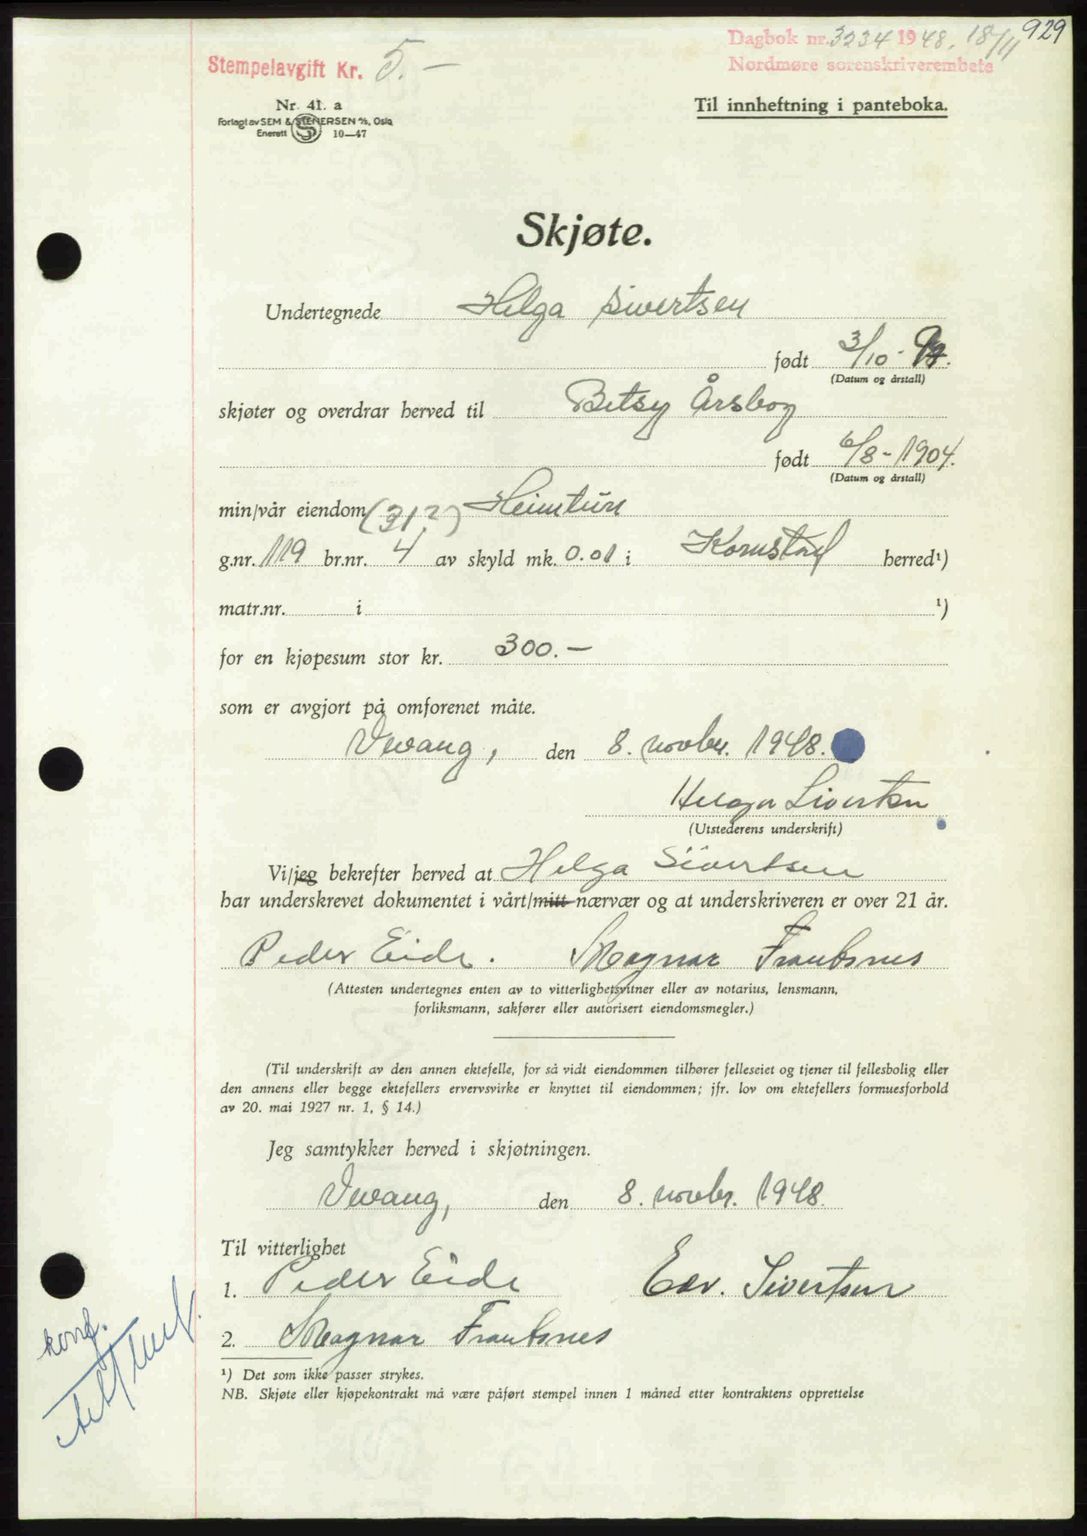 929
Dagbok nr. 3234 1948. 18/11
Nordmøre sorenskriverembete
Stempelavgift Kr. 5.—
Nr. 41. a
Forlagt av SEM & STENERSEN A/S, Oslo
Enerett S 10—47
Til innheftning i panteboka.
Skjøte.
Undertegnede Helga Sivertsen
født 3/10-
(Datum og årstall)
skjøter og overdrar herved til Betsy Årsbog
født 6/8-1904.
(Datum og årstall)
min/vår eiendom (312) Heimtun
g.nr. 119 br.nr. 4 av skyld mk. 0.01 i Kornstad herred¹)
matr.nr. i ¹)
for en kjøpesum stor kr. 300.—
som er avgjort på omforenet måte.
Vevang, den 8. novbr. 1948.
Helga Sivertsen
(Utstederens underskrift)
Vi/jeg bekrefter herved at Helga Sivertsen
har underskrevet dokumentet i vårt/mitt nærvær og at underskriveren er over 21 år.
Peder Eide. Magnar Frantsnes
(Attesten undertegnes enten av to vitterlighetsvitner eller av notarius, lensmann,
forliksmann, sakfører eller autorisert eiendomsmegler.)
(Til underskrift av den annen ektefelle, for så vidt eiendommen tilhører felleseiet og tjener til fellesbolig eller
den annens eller begge ektefellers ervervsvirke er knyttet til eiendommen; jfr. lov om ektefellers formuesforhold
av 20. mai 1927 nr. 1, § 14.)
Jeg samtykker herved i skjøtningen.
Vevang, den 8. novbr. 1948.
Til vitterlighet
1. Peder Eide Edv. Sivertsen
2. Magnar Frantsnes
¹) Det som ikke passer strykes.
NB. Skjøte eller kjøpekontrakt må være påført stempel innen 1 måned etter kontraktens opprettelse
konf.